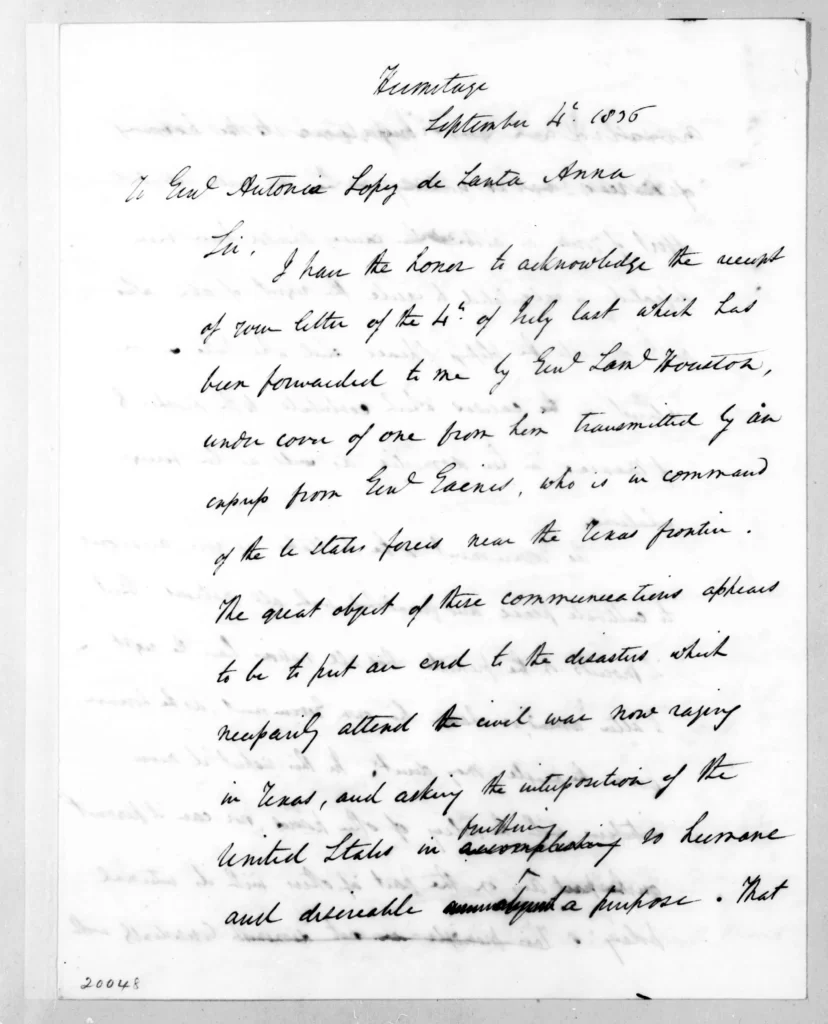 Hermitage
September 4th. 1836
To Genl Antonio Lopez de Santa Anna
Sir,
I have the honor to acknowledge the receipt
of your letter of the 4th. of July last which has
been forwarded to me by Genl Saml Houston,
under cover of one from him transmitted by an
express from Genl Gaines, who is in command
of the U States forces near the Texas frontier.
The great object of these communications appears
to be to put an end to the disasters which
necessarily attend the civil war now raging
in Texas, and asking the interposition of the
furthering
United States in accomplishing so humane
and desireable a purpose. That
20048